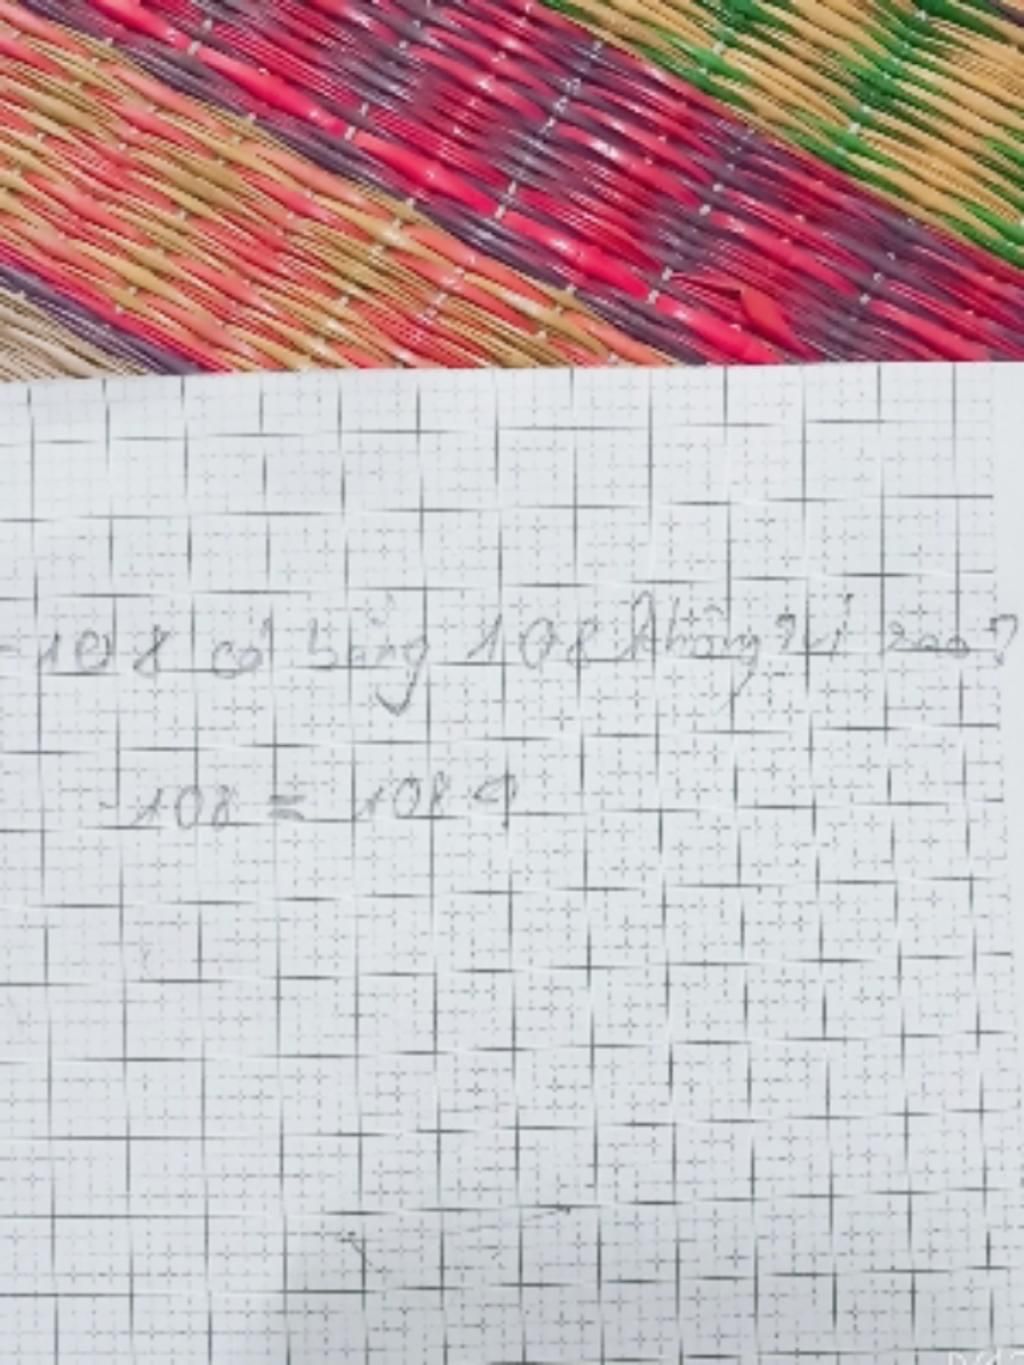 - 108 có bằng 108 không? vì sao?
- 108 = 108